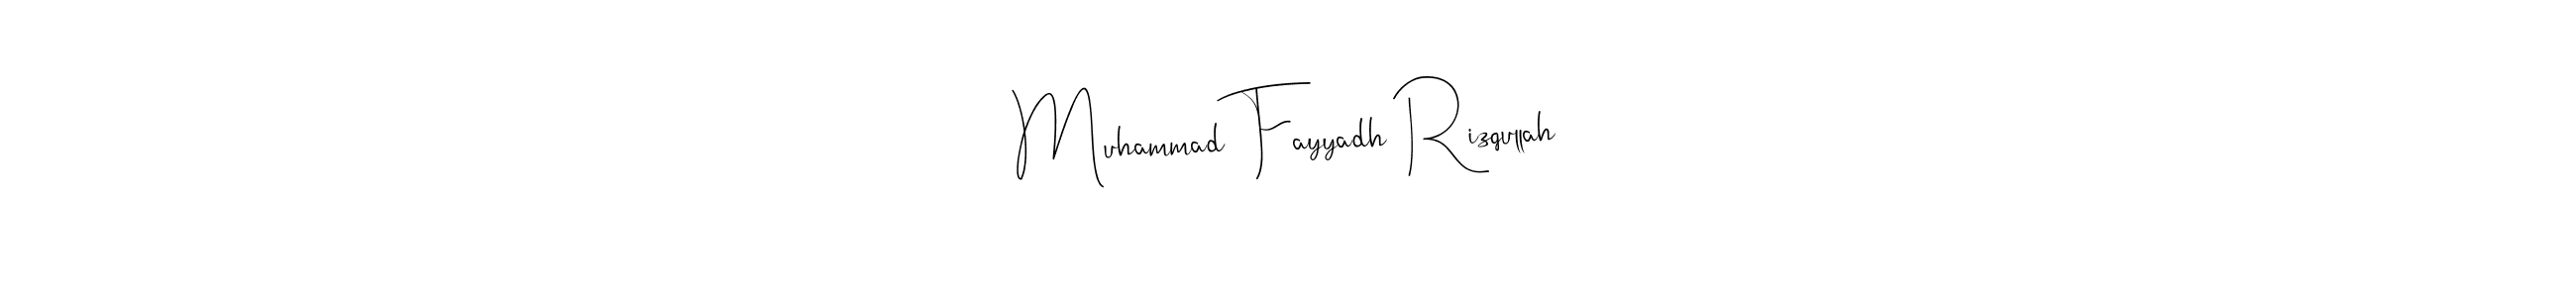 Muhammad Fayyadh Rizqullah